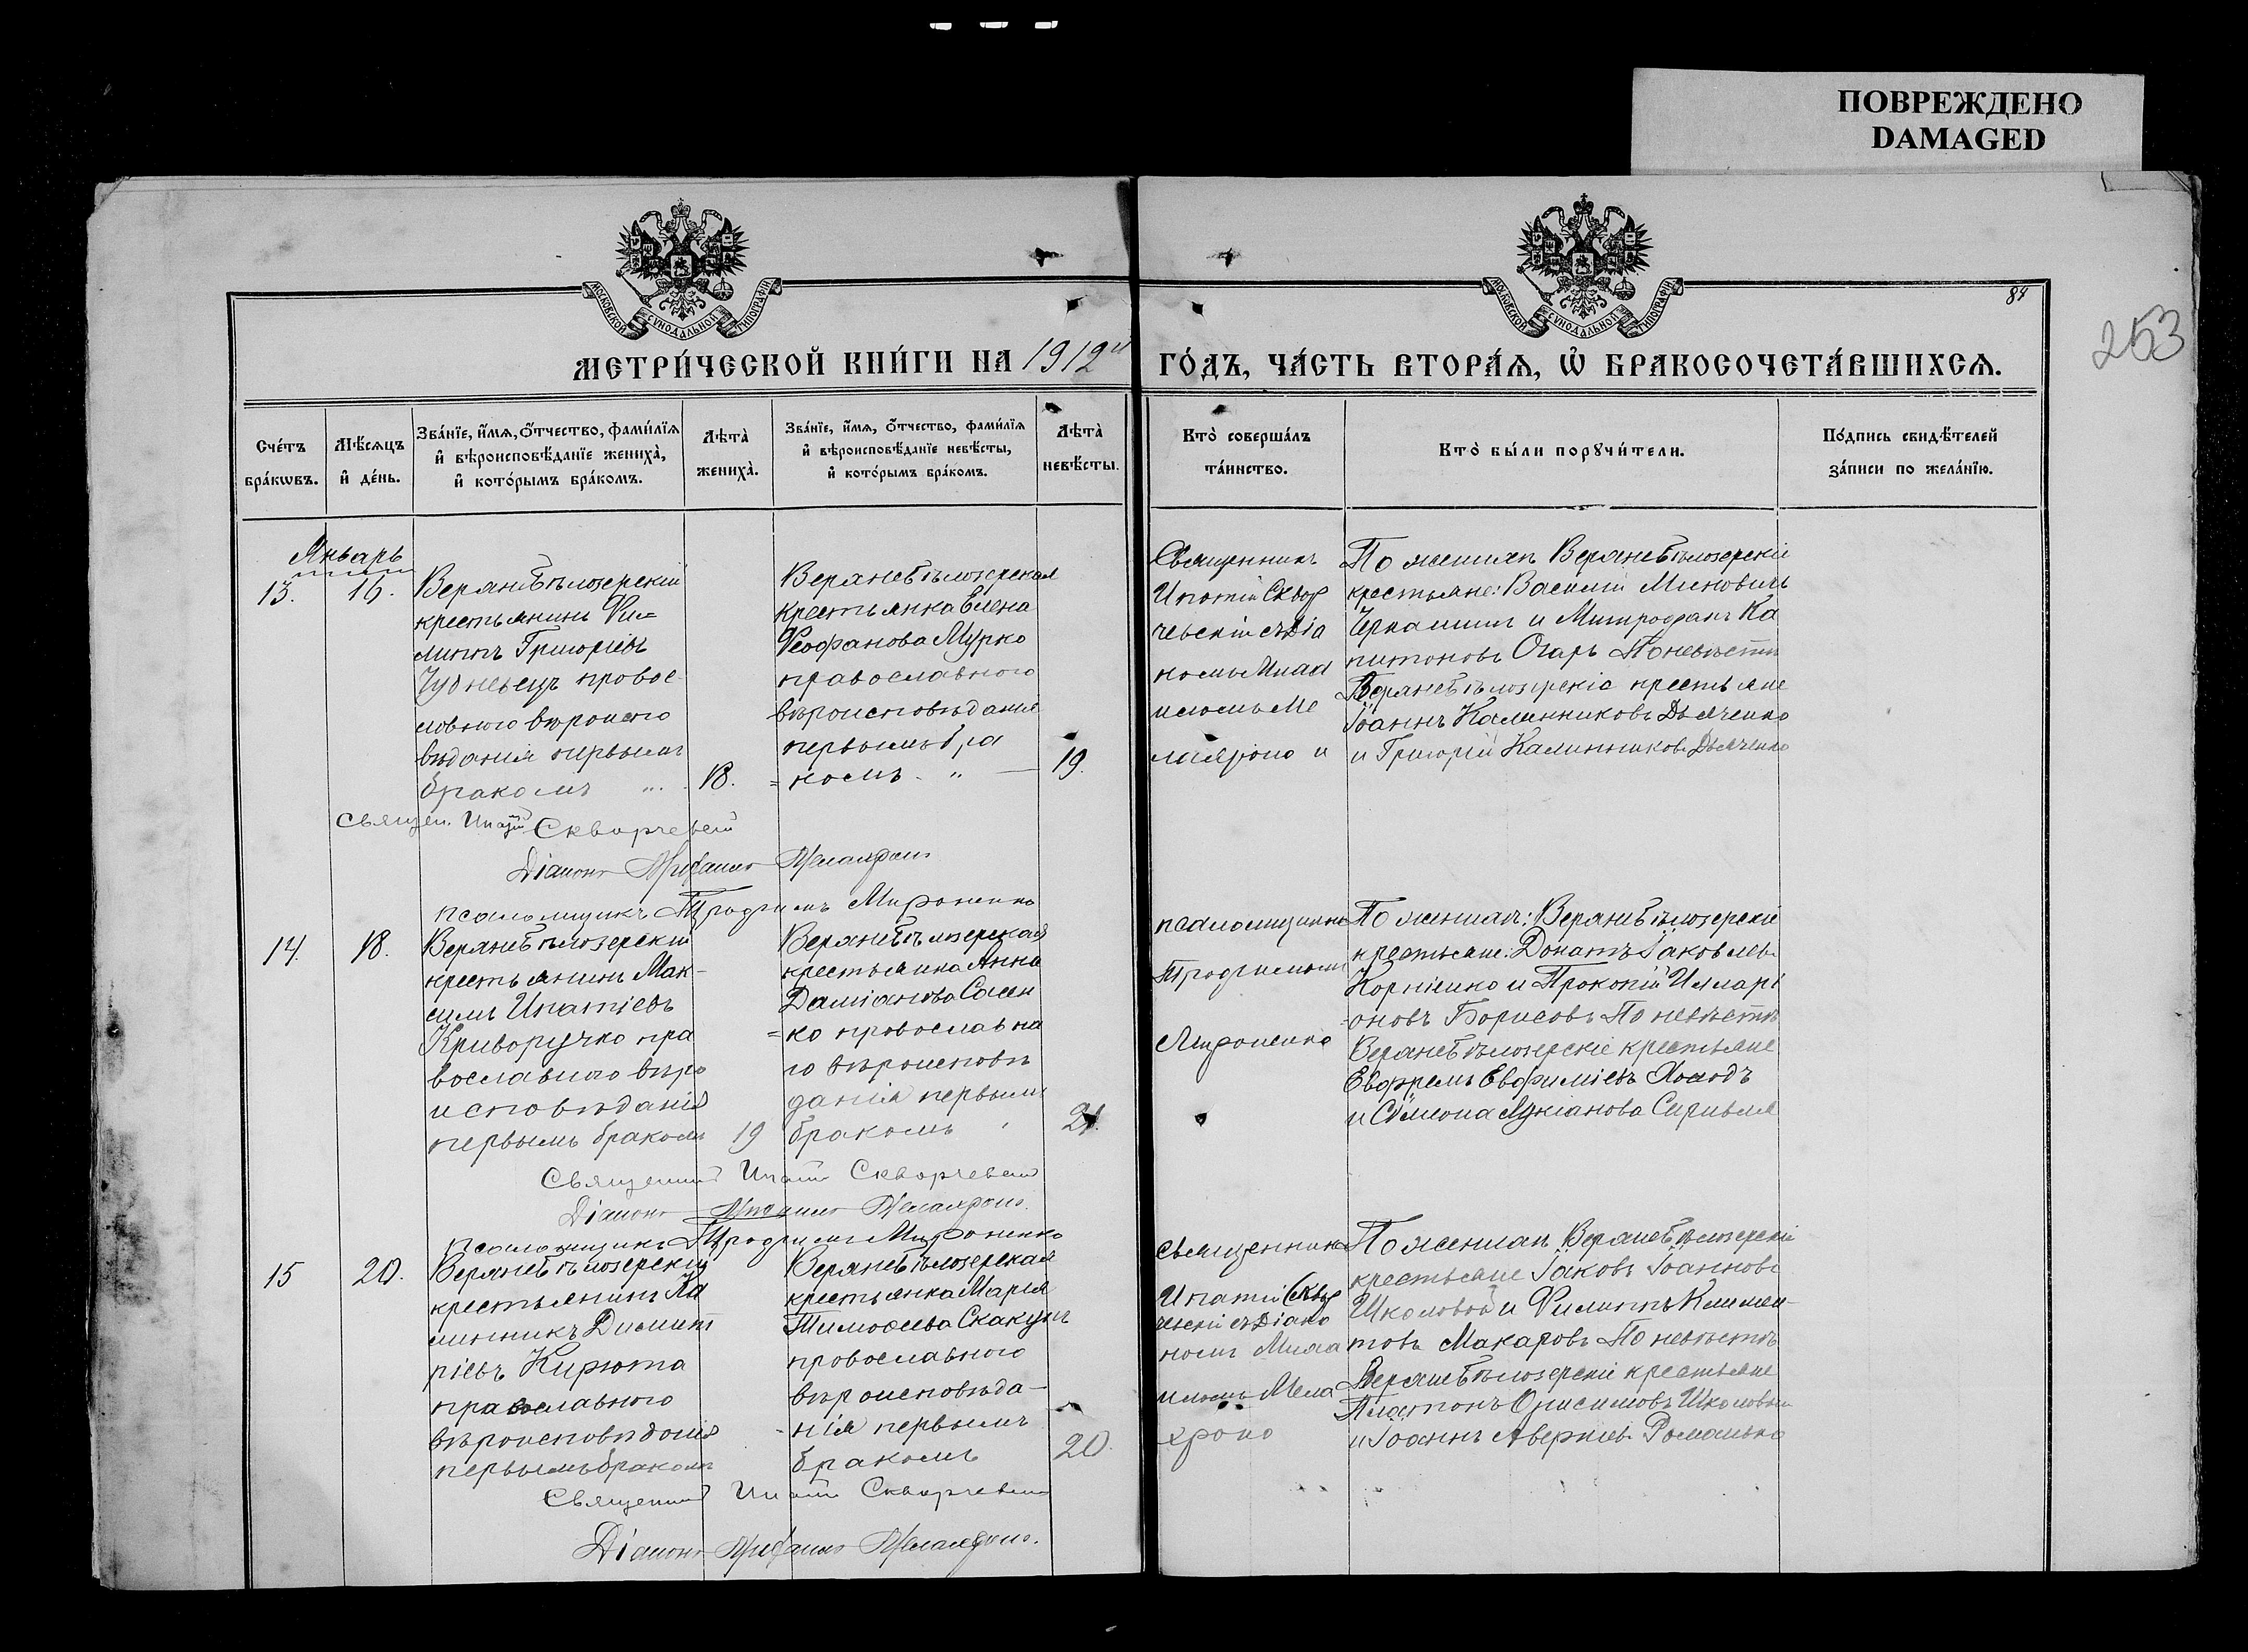 ПОВРЕЖДЕНО
DAMAGED
МОСКОВСКОЙ СѴНОДАЛЬНОЙ ТИПОГРАФІИ
МОСКОВСКОЙ СѴНОДАЛЬНОЙ ТИПОГРАФІИ
84
253
МЕТРИ́ЧЕСКОЙ КНИ́ГИ НА 1912й ГО́ДЪ, ЧА́СТЬ ВТОРА́Ѧ, Ѽ БРАКОСОЧЕТА́ВШИХСѦ.
Сче́тъ бра́кѡвъ.
Мѣ́сѧцъ и҆ де́нь.
Зва́нїе, и҆́мѧ, ѻ҆́тчество, фами́лїѧ
и҆ вѣроисповѣ́данїе жениха̀,
и҆ кото́рымъ бра́комъ.
Лѣта̀ жениха̀.
Зва́нїе, и҆́мѧ, ѻ҆́тчество, фами́лїѧ
и҆ вѣроисповѣ́данїе невѣ́сты,
и҆ кото́рымъ бра́комъ.
Лѣта̀ невѣ́сты.
Кто̀ соверша́лъ та́инство.
Кто̀ бы́ли порꙋчи́тели.
По́дпись свидѣ́телей за́писи по жела́нїю.
Январь
13.
16.
Верхнебѣлозерскій
крестьянинъ Фи=
липпъ Григоріевъ
православнаго
вѣроиспо
вѣданія первымъ
бракомъ
18.
Верхнебѣлозерская
крестьянка Елена
Феофанова Мурко
православного
вѣроисповѣданія
первымъ бра
=комъ
19.
Священникъ
Ипатій Сквор
чевскій съ Діа
кономъ
По женихѣ Верхнебѣлозерскіе
крестьяне: Василій Миновичъ
и Митрофанъ Ка
питоновъ Огарь По невѣстѣ
Верхнебѣлозерскіе крестьяне
Іоаннъ Калинниковъ Дьяченко
и Григорій Калинниковъ Дьяченко
Священ. Ипатій Скворчевскій
Діаконъ
псаломщикъ Трофимъ Мироненко
14.
18.
Верхнебѣлозерскій
крестьянинъ Мак-
симъ Ипатіевъ
Криворучко пра
вославнаго вѣро
исповѣданія
первымъ бракомъ
19
Верхнебѣлозерская
крестьянка Анна
Даміанова Сасен
=ко провославна
го вѣроисповѣ
данія первымъ
бракомъ
21.
псаломщикомъ
Трофимомъ
Мироненко
По женихѣ: Верхнебѣлозерскіе
крестьяне: Донатъ Іаковлевъ
Корніенко и Прокопій Иларі
=оновъ Борисовъ По невѣстѣ
Верхнебѣлозерскіе крестьяне
Евфремъ Евфиміевъ
и Симеонъ Лукіановъ
Священникъ Ипатій Скворчевскій
Діаконъ
псаломщикъ Трофимъ Мироненко
15
20.
Верхнебѣлозерскій
крестьянинъ Ка
линникъ Димит
ріевъ Кирюта
православного
вѣроисповѣданія
первымъ бракомъ
Верхнебѣлозерская
крестьянка Марія
Тимофеева Скакунъ
провославного
вѣроисповѣда-
нія первымъ
бракомъ
20.
священникъ
Ипатій Сквор
чевскій съ Діако
номъ
По женихѣ Верхнебѣлозерскіе
крестьяне Іаковъ Іоанновъ
Школовой и Филиппъ Климен-
товъ Макаровъ По невѣстѣ
Верхнебѣлозерскіе крестьяне
Платонъ Онисимовъ Школовый
и Іоаннъ Аверкіевъ Романько
Священникъ Ипатій Скворчевскій
Діаконъ